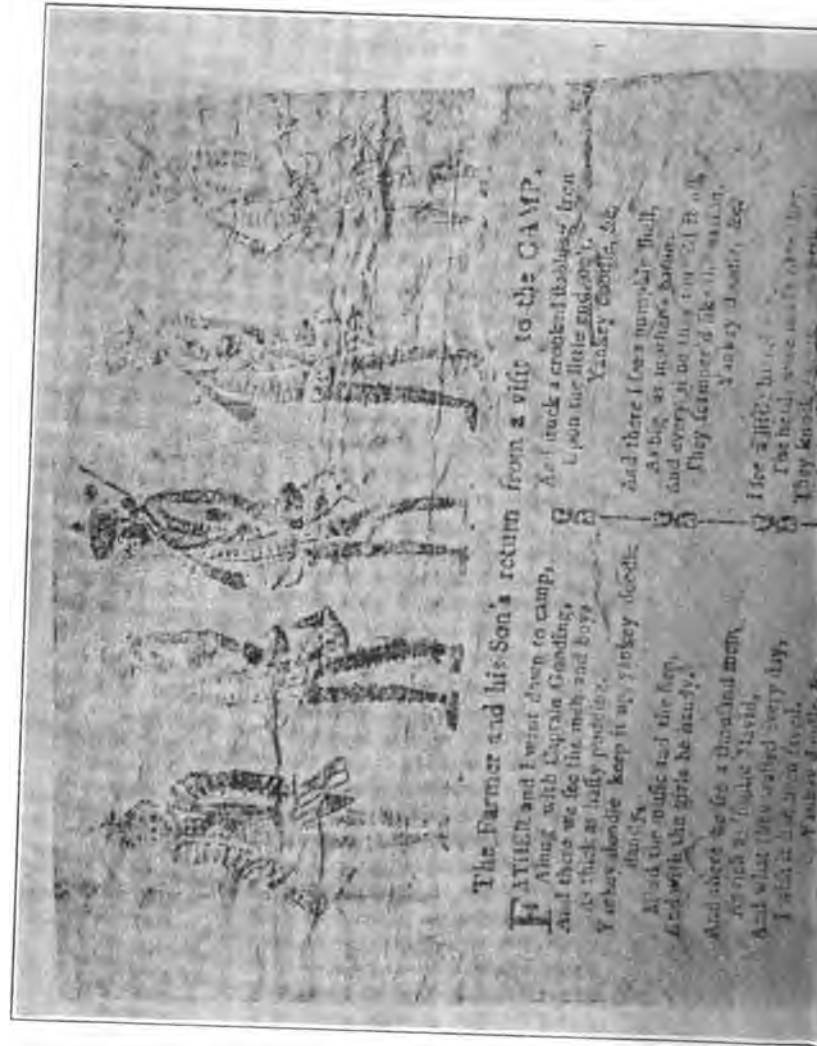 The Farmer and his Son's return from a viſit to the CAMP.
FATHER and I went down to camp,
Along with Captain Gooding,
And there we ſee the men and boys,
As thick as haſty pudding.
Yankey doodle keep it up, yankey doodle
dandy,
Mind the muſic and the ſtep,
And with the girls be handy.
And there we ſee a thouſand men,
As rich as 'Squire David,
And what they waſted every day,
I wiſh it had been ſaved.
Yankey doodle
As I ſtuck a crooked iron
Upon the little end on't,
Yankey doodle, &c.
And there I ſee a pumpkin ſhell,
As big as mother's baſon,
And every time they
They ſcamper'd like the nation.
Yankey doodle, &c.
I ſee a little
The heads were made
They knock'd